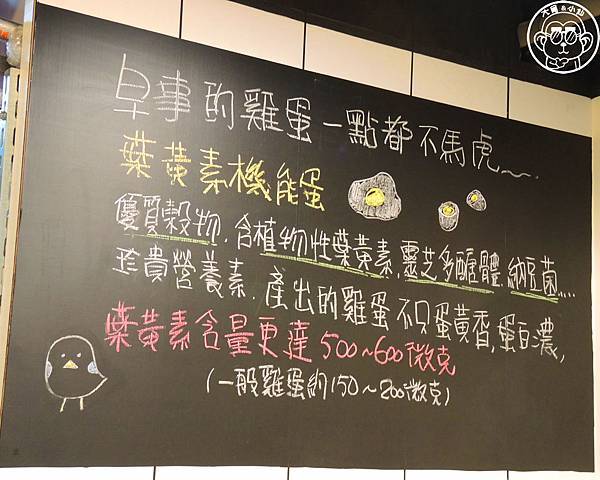 早事的雞蛋一點都不馬虎~
葉黃素機能蛋
優質穀物.含植物性葉黃素.靈芝多醣體.納豆菌....
珍貴營養素.產出的雞蛋不只蛋黃香,蛋白濃,
葉黃素含量更達500~600微克
(一般雞蛋約150~200微克)